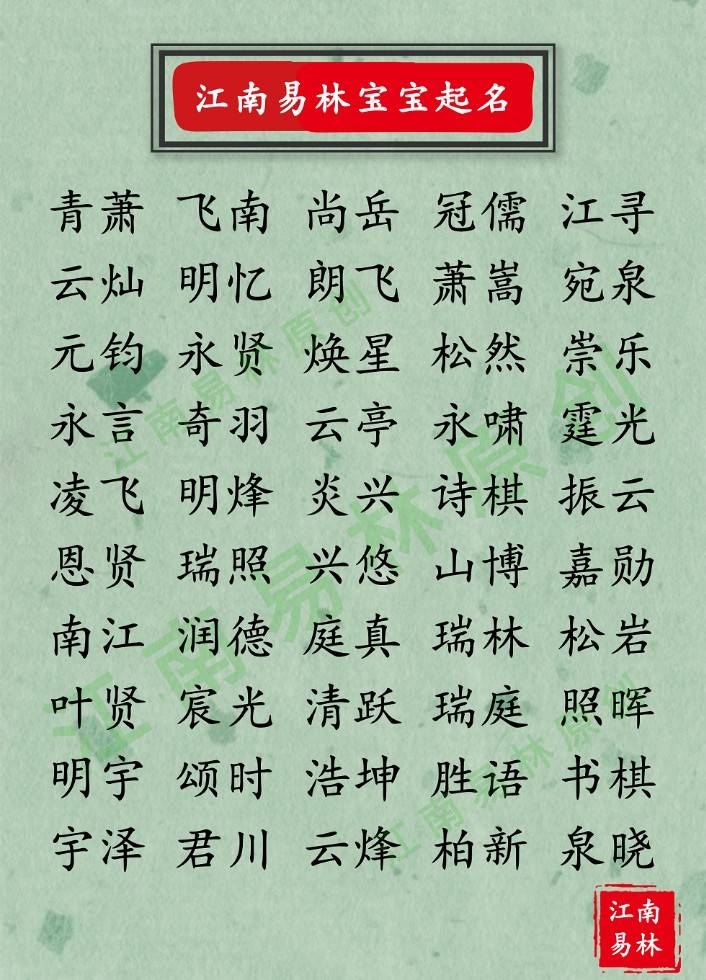 江南易林宝宝起名
青萧 飞南 尚岳 冠儒 江寻
云灿 明忆 朗飞 萧嵩 宛泉
元钧 永贤 焕星 松然 崇乐
永言 奇羽 云亭 永啸 霆光
凌飞 明烽 炎兴 诗棋 振云
恩贤 瑞照 兴悠 山博 嘉勋
南江 润德 庭真 瑞林 松岩
叶贤 宸光 清跃 瑞庭 照晖
明宇 颂时 浩坤 胜语 书棋
宇泽 君川 云烽 柏新 泉晓
江南易林原创
江南易林原创
江南易林原创
江南
易林